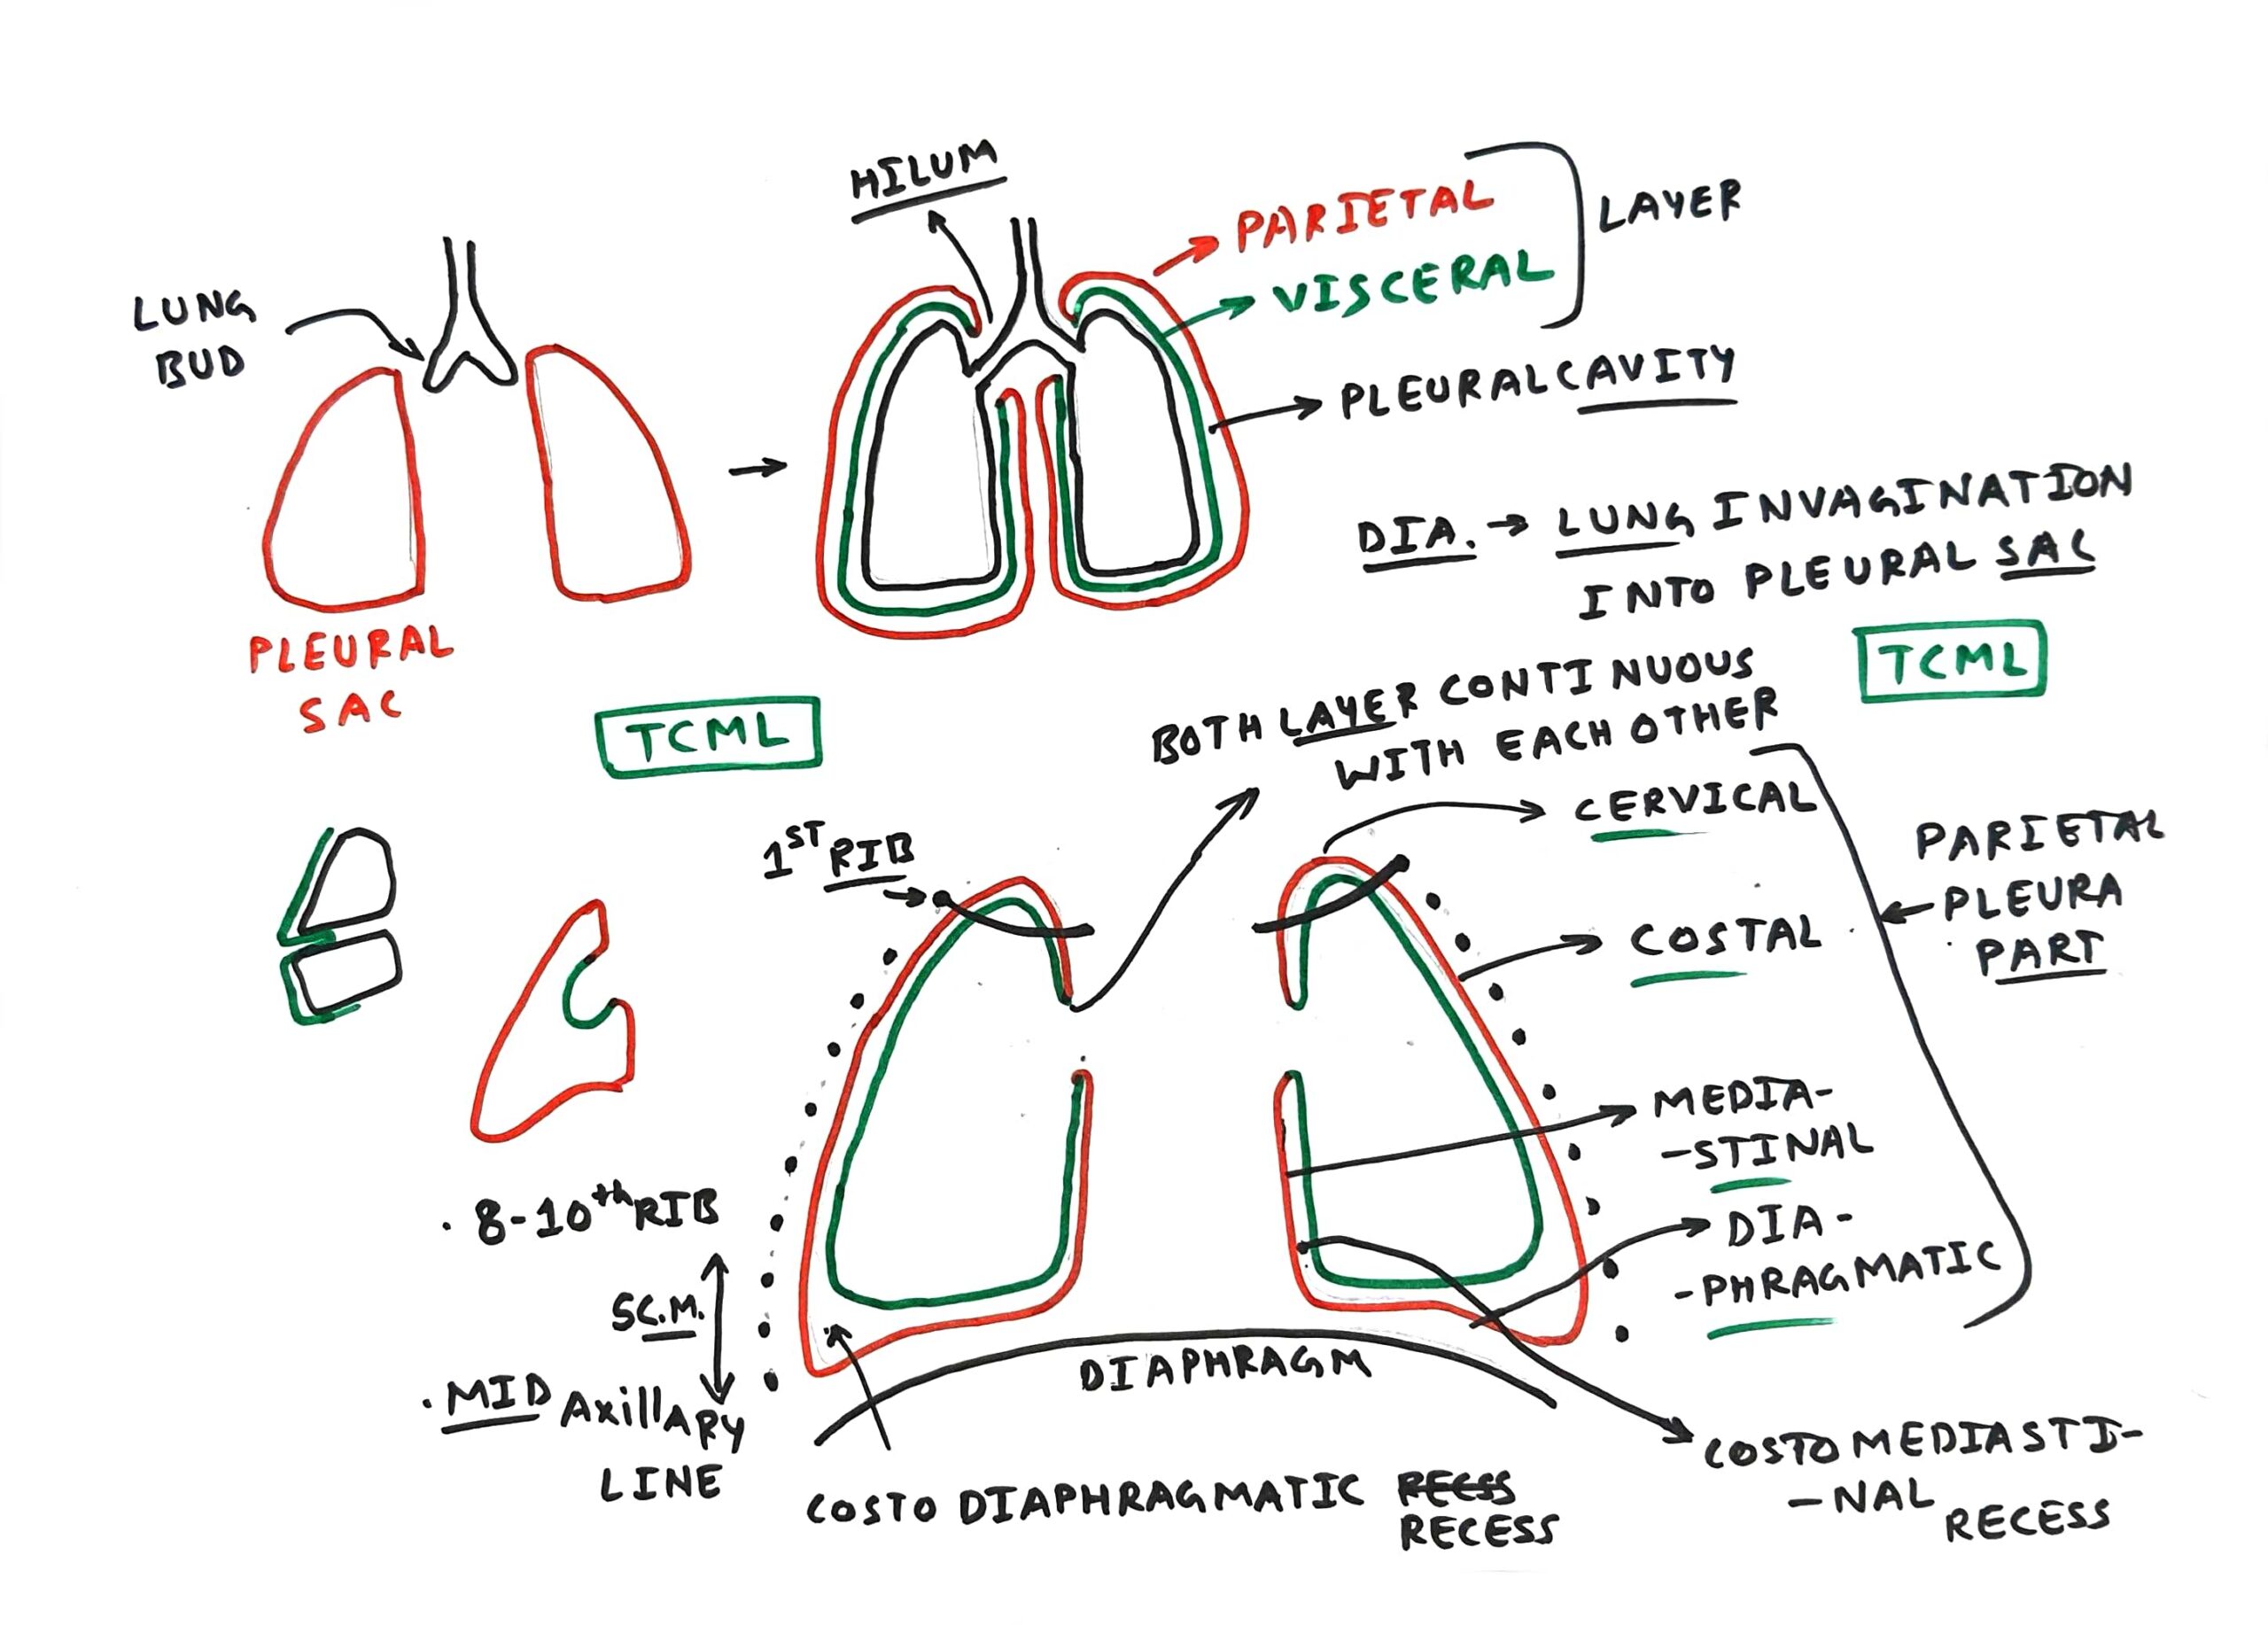 HILUM
PARIETAL
VISCERAL
LAYER
LUNG
BUD
PLEURAL CAVITY
DIA. → LUNG INVAGINATION
INTO PLEURAL SAC
PLEURAL
SAC
TCML
TCML
BOTH LAYER CONTINUOUS
WITH EACH OTHER
1ST RIB
CERVICAL
COSTAL
MEDIA-
-STINAL
DIA-
-PHRAGMATIC
PARIETAL
PLEURA
PART
· 8-10th RIB
5C.M.
· MID AxillARy
LINE
DIAPHRAGM
COSTO DIAPHRAGMATIC RECSS
RECESS
COSTO MEDIASTI-
-NAL
RECESS